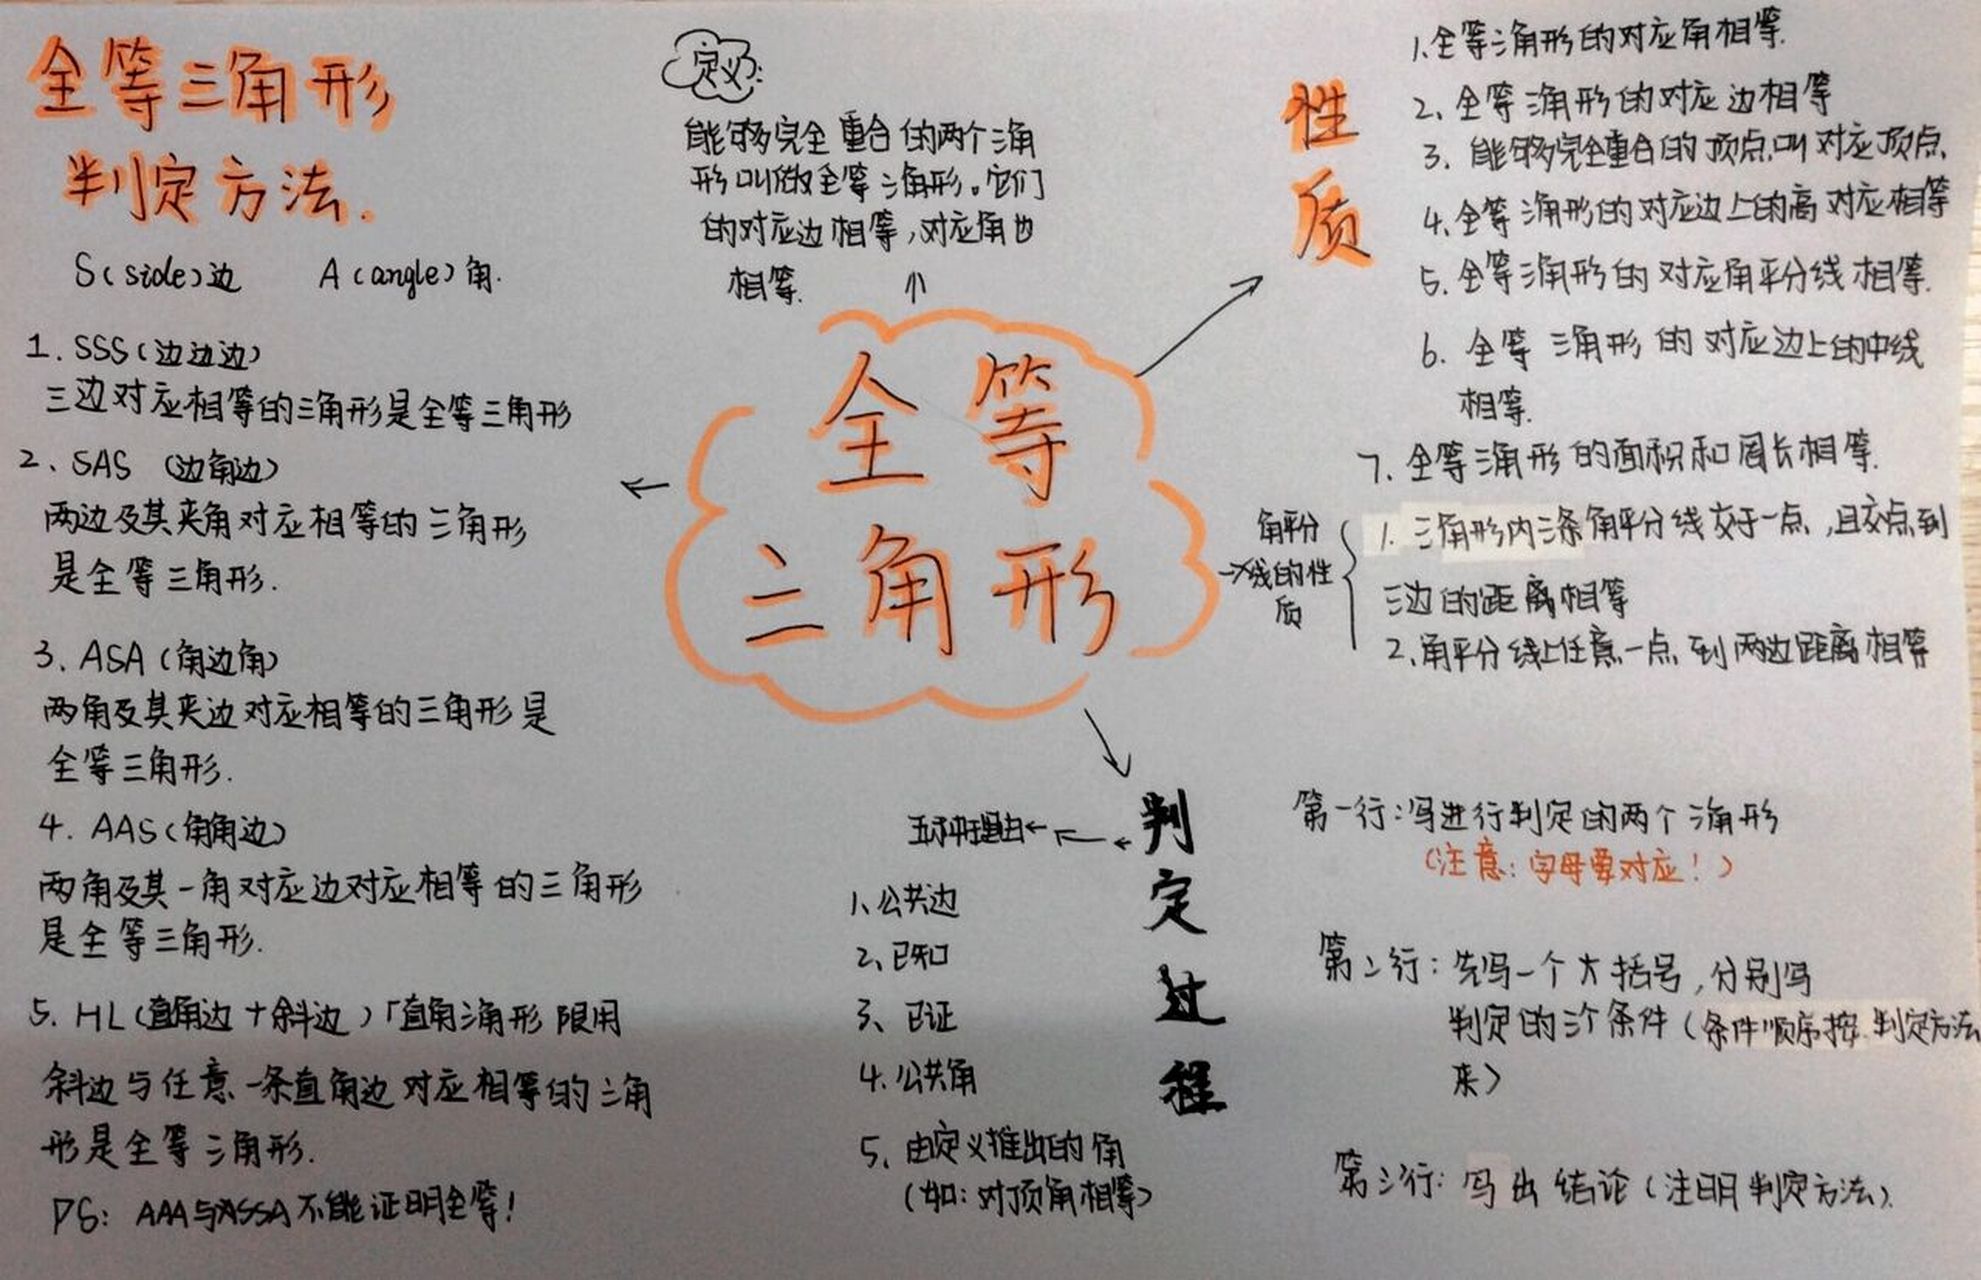 全等三角形
判定方法.
S(side)边 A(angle)角.
1. SSS(边边边)
三边对应相等的三角形是全等三角形
2、SAS (边角边)
两边及其夹角对应相等的三角形
是全等三角形.
3. ASA(角边角)
两角及其夹边对应相等的三角形是
全等三角形.
4. AAS(角角边)
两角及其一角对应边对应相等的三角形
是全等三角形.
5. HL(直角边+斜边)「直角三角形限用
斜边与任意一条直角边对应相等的三角
形是全等三角形.
PS: AAA与ASSA不能证明全等!
定义:
能够完全重合的两个三角
形叫做全等三角形。它们
的对应边相等,对应角也
相等.
全等
三角形
性质
1.全等三角形的对应角相等.
2. 全等三角形的对应边相等
3. 能够完全重合的顶点叫对应顶点.
4.全等三角形的对应边上的高对应相等
5.全等三角形的对应角平分线相等.
6. 全等三角形的对应边上的中线
相等.
7. 全等三角形的面积和周长相等.
角平分
线的性
质
1. 三角形内三条角平分线交于一点,且交点到
三边的距离相等
2.角平分线上任意一点到两边距离相等
判定过程
五种理由
1、公共边
2、已知
3、已证
4.公共角
5、由定义推出的角
(如:对顶角相等)
第一行:写进行判定的两个三角形
(注意:字母要对应!)
第二行:先写一个大括号,分别写
判定的三个条件(条件顺序按判定方法
来)
第三行:写出结论(注明判定方法).